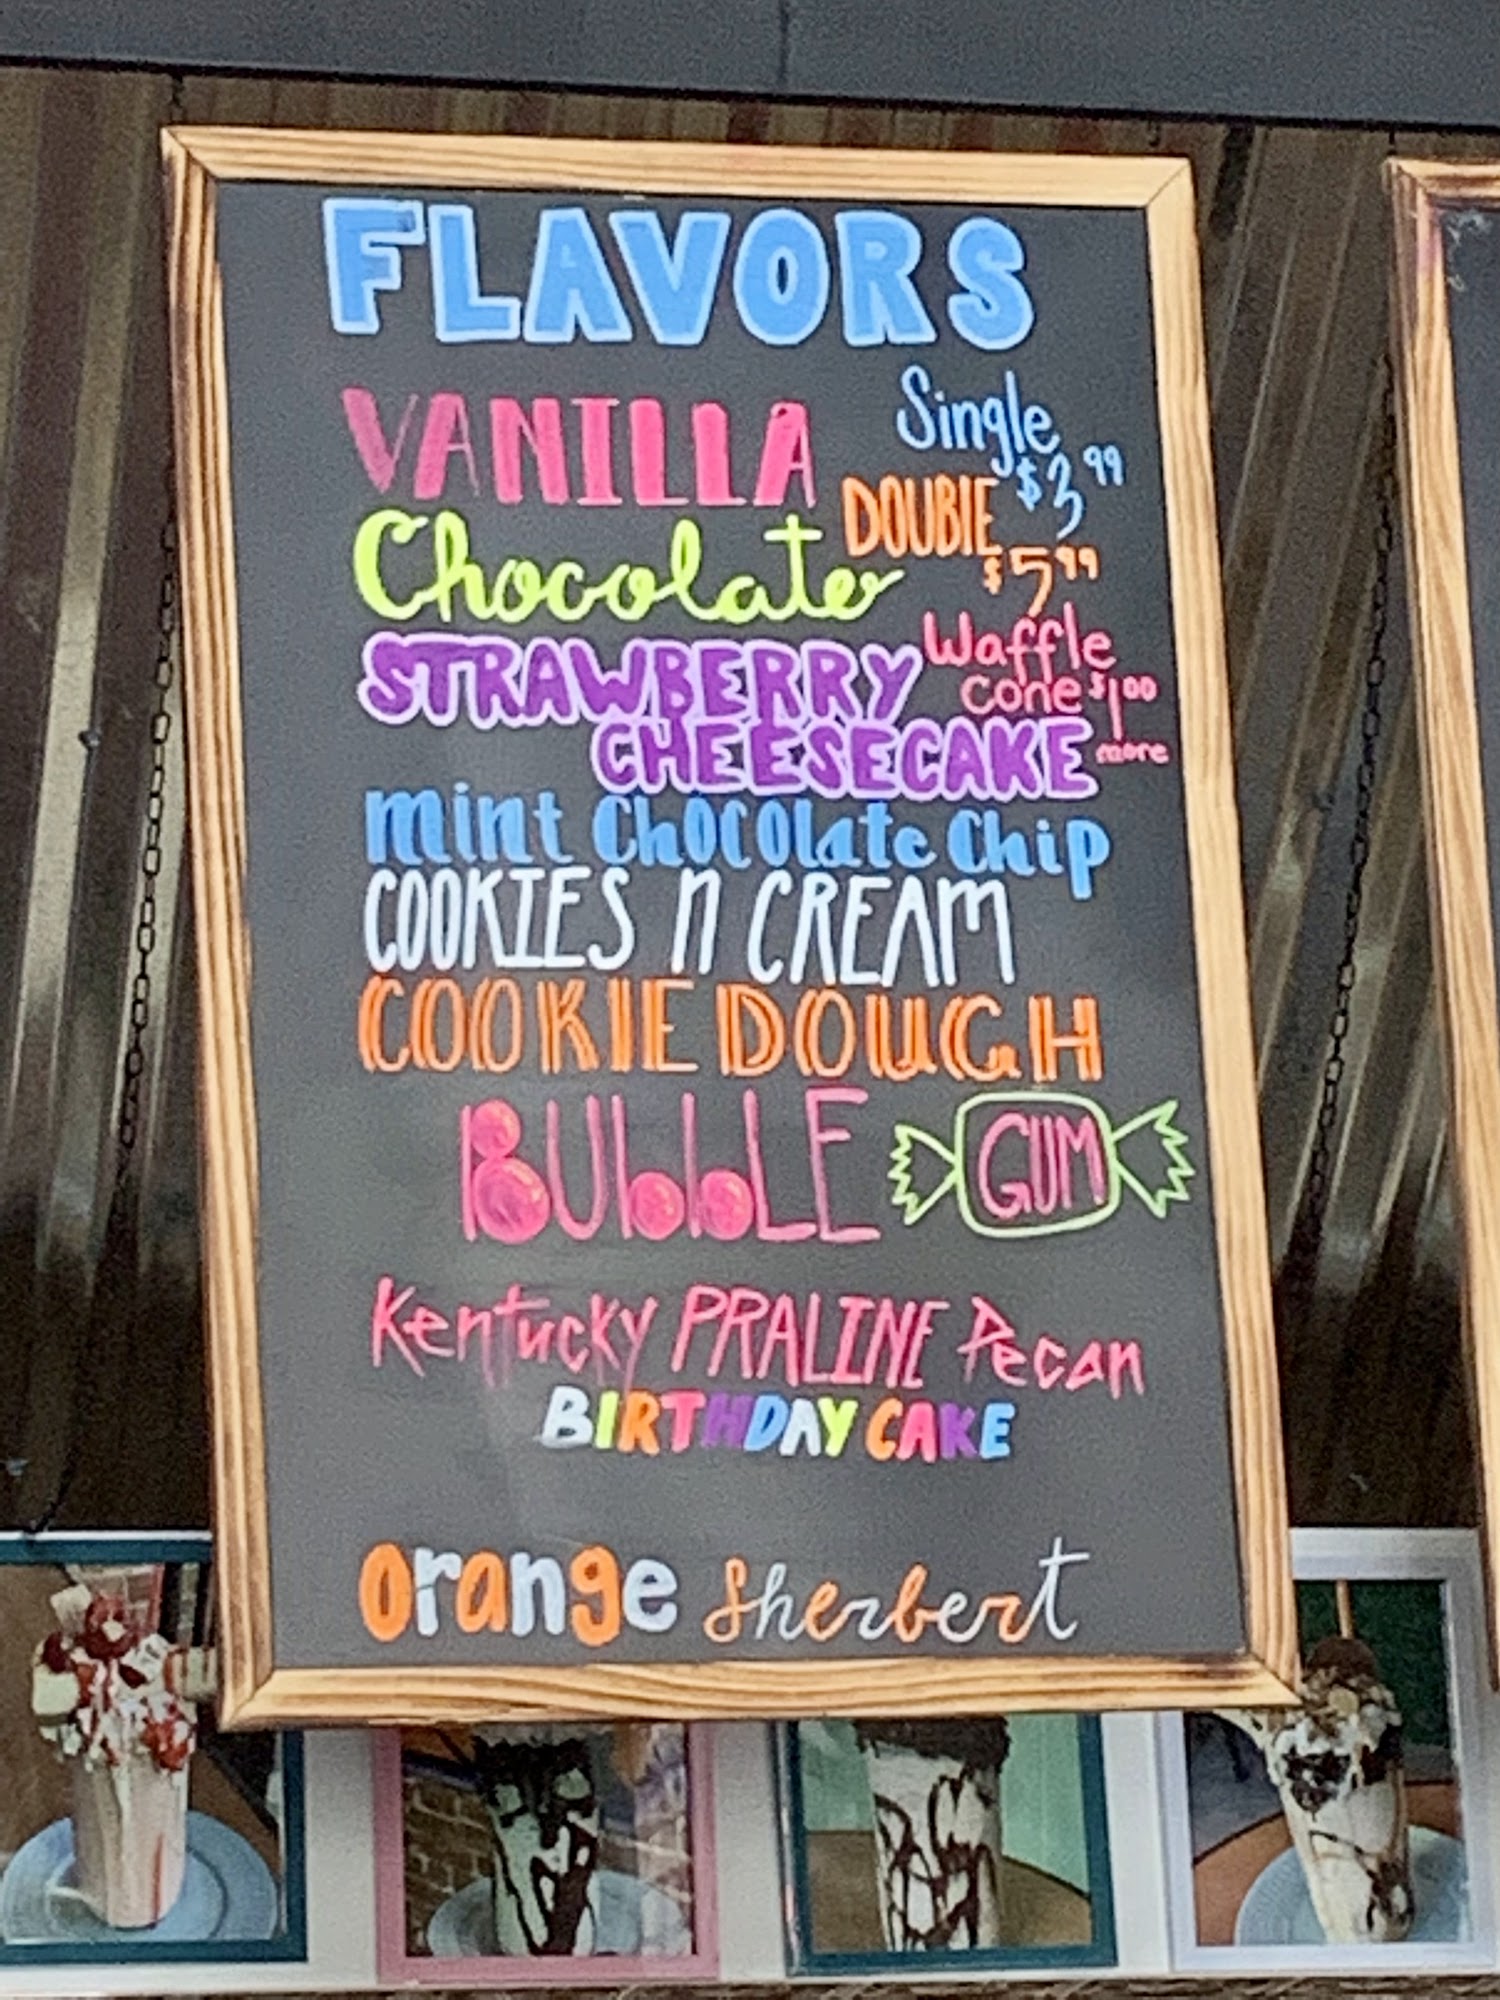 FLAVORS
VANILLA
Single
$3.99
DOUBLE
$5.99
Chocolate
Waffle
cone $1.00
more
STRAWBERRY
CHEESECAKE
mint Chocolate Chip
COOKIES n CREAM
COOKIE DOUGH
BUbbLE GUM
Kentucky PRALINE Pecan
BIRTHDAY CAKE
Orange Sherbert